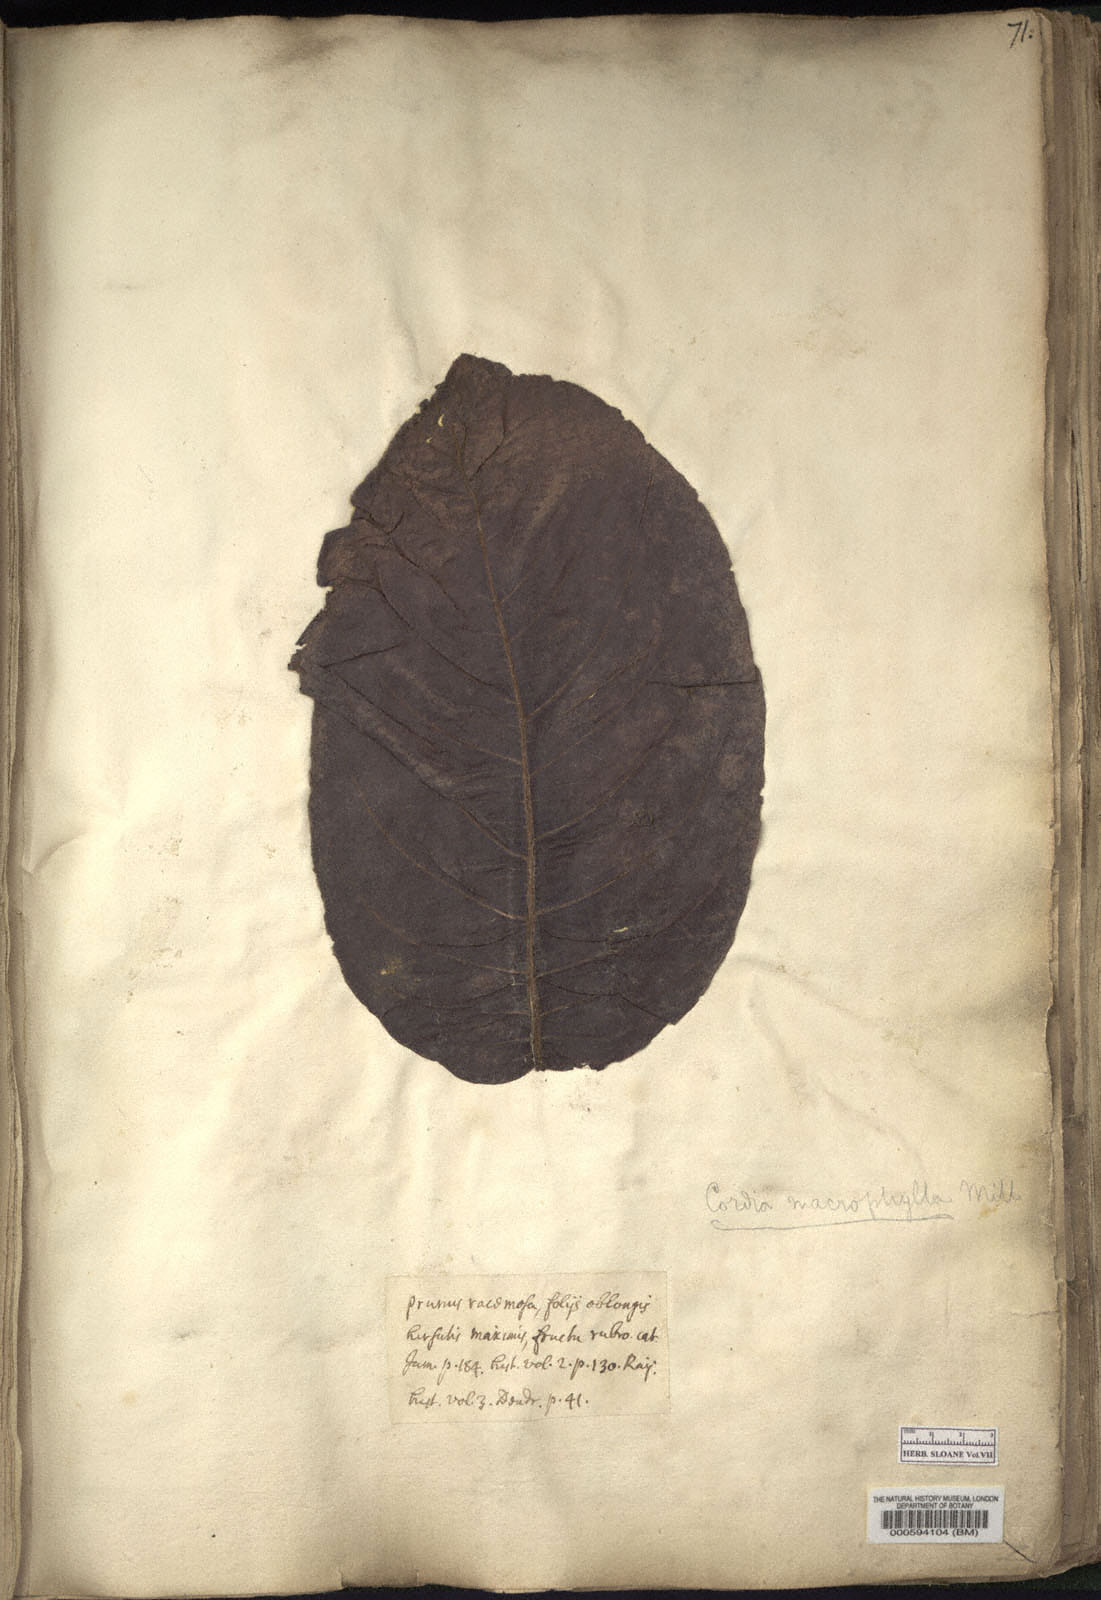 71.
Cordia macrophylla Mill.
prunus racemosa, folijs oblongis
hirsutis maximis, fructu rubro. cat.
Jam. p. 184. hist. vol. 2. p. 130. Raij.
hist. vol. 3. Dendr. p. 41.
HERB. SLOANE Vol.VII
THE NATURAL HISTORY MUSEUM, LONDON
DEPARTMENT OF BOTANY
000594104 (BM)